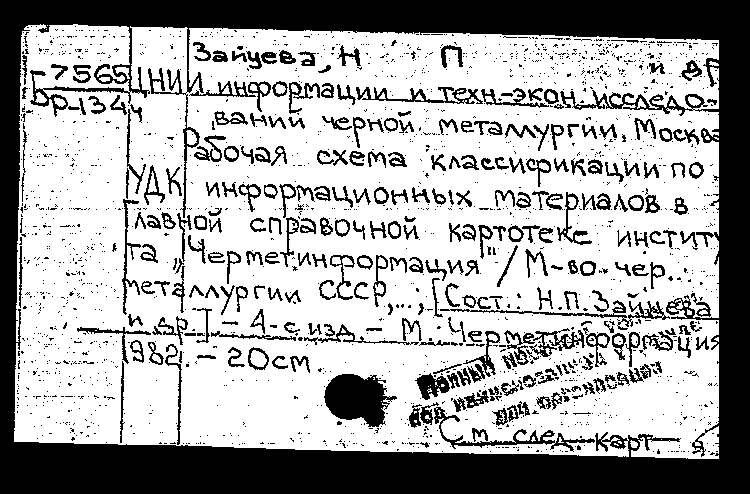 Зайцева, Н П
и др
Г 7565 ЦНИИ информации и техн.-экон. исследо-
Бр-1344 ваний черной металлургии. Москва
Рабочая схема классификации по
УДК информационных материалов в
Главной справочной картотеке институ
та „Черметинформация" / М-во чер.
металлургии СССР,...; [Сост.: Н.П. Зайцева
и др.] - 4-с изд. - М.: Черметинформация
1982. - 20см.
Полный
под наименование
или организации
См. след. карт.